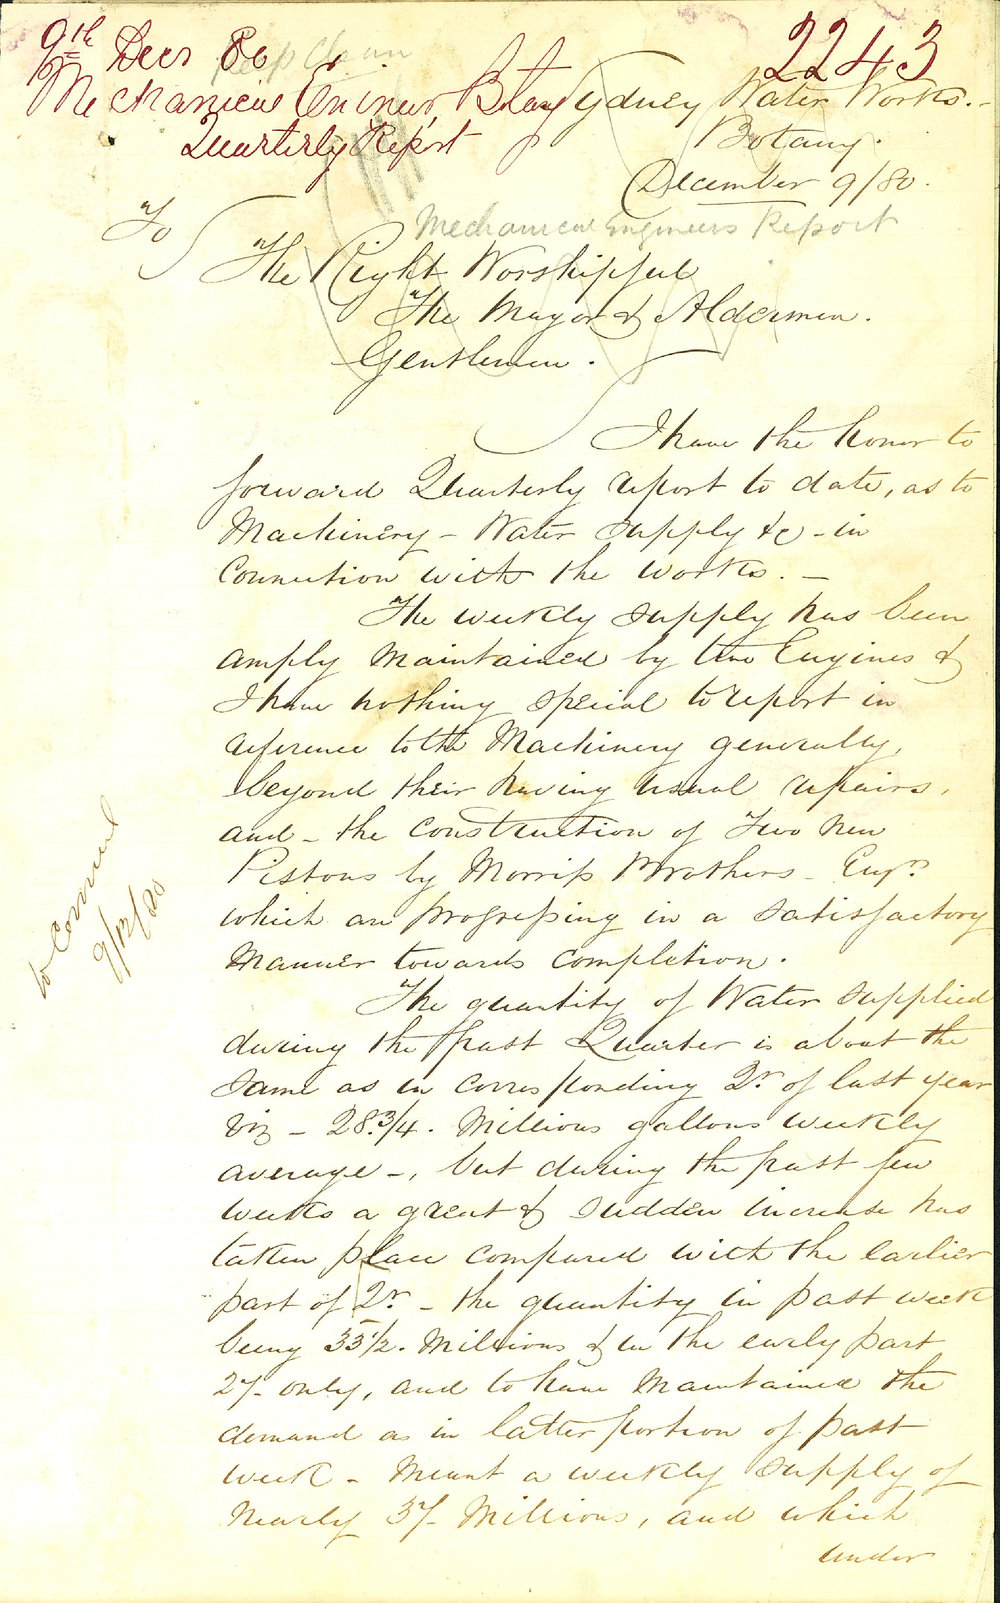 9th Decr 80
2243
Mechanical Engineer, Botany
Quarterly Report
Sydney Water Works.-
Botany.
December 9/80.
Mechanical Engineers Report
To
The Right Worshipful
The Mayor & Aldermen.
Gentlemen.
I have the honor to
forward Quarterly report to date, as to
Machinery - Water Supply &c - in
Connection with the works. -
The weekly supply has been
amply maintained by two Engines &
I have nothing special to report in
reference to the Machinery generally,
beyond their having usual repairs,
and - the construction of Two New
Pistons by Morris Brothers - Engrs
which are progressing in a satisfactory
Manner towards completion.
The quantity of Water supplied
during the past Quarter is about the
same as in corresponding Qr of last year
viz - 28.3/4. Millions gallons weekly
average -, but during the past few
weeks a great & sudden increase has
taken place compared with the earlier
part of Qr - the quantity in past week
being 33 1/2. Millions & in the early part
27- only, and to have Maintained the
demand as in latter portion of past
week - Meant a weekly supply of
nearly 37- Millions, and which
under
to Council
9/12/80